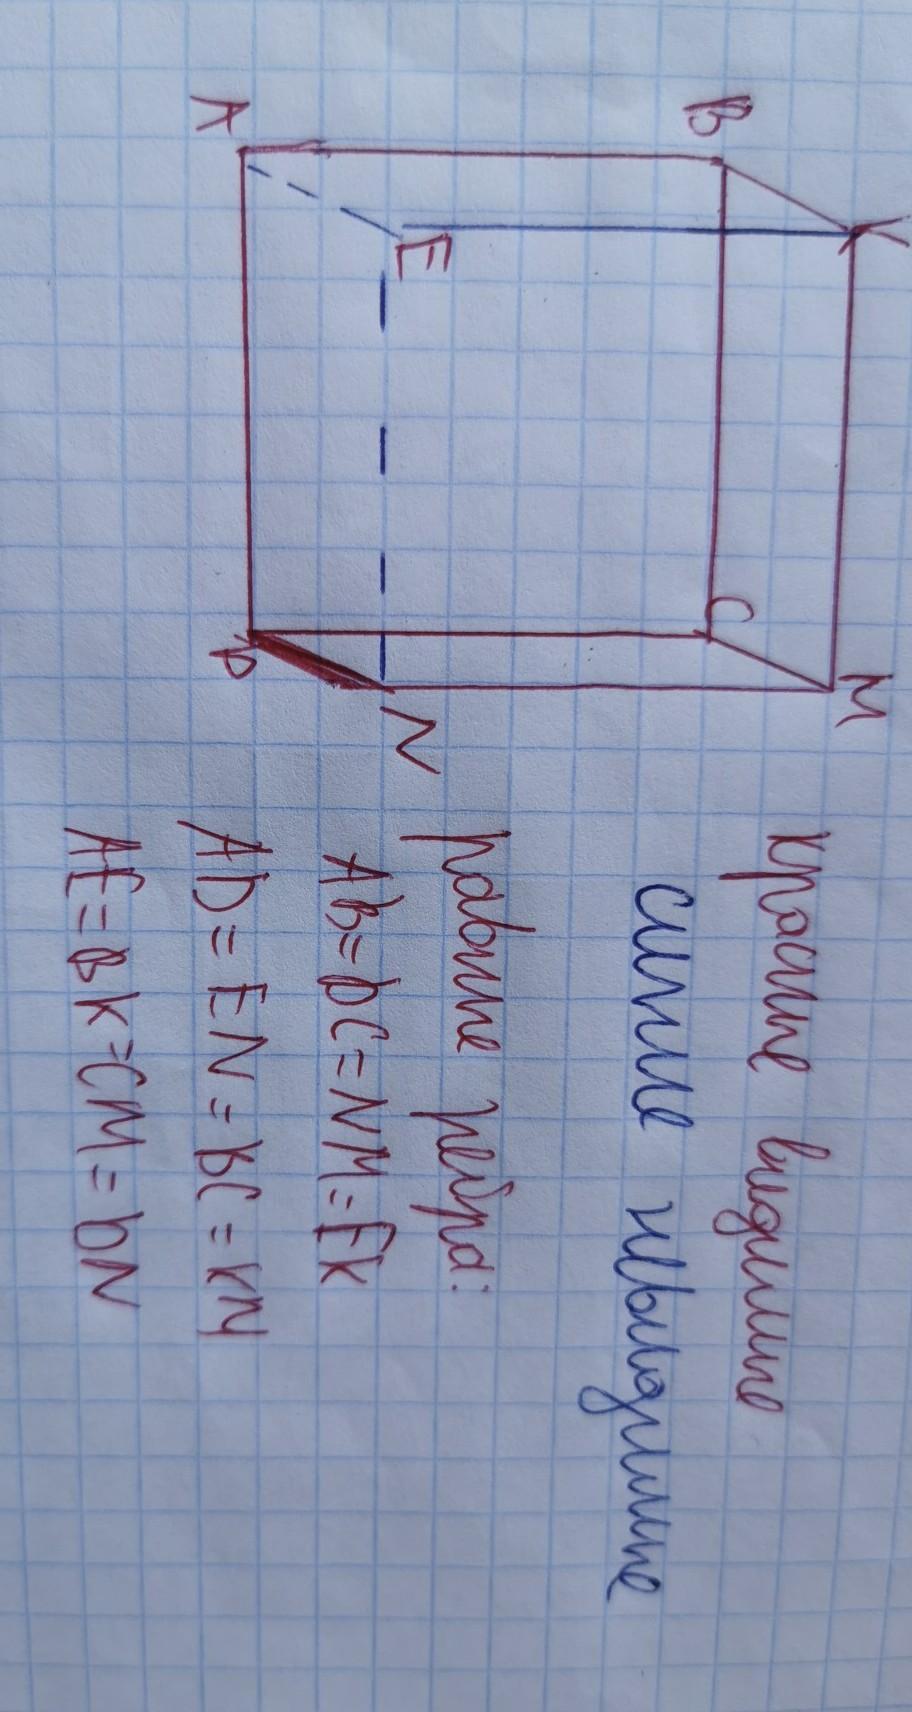 B
K
M
A
E
C
D
N
красные видимые
синие невидимые
равные ребра:
AB = DC = NM = EK
AD = EN = BC = KM
AE = BK = CM = DN